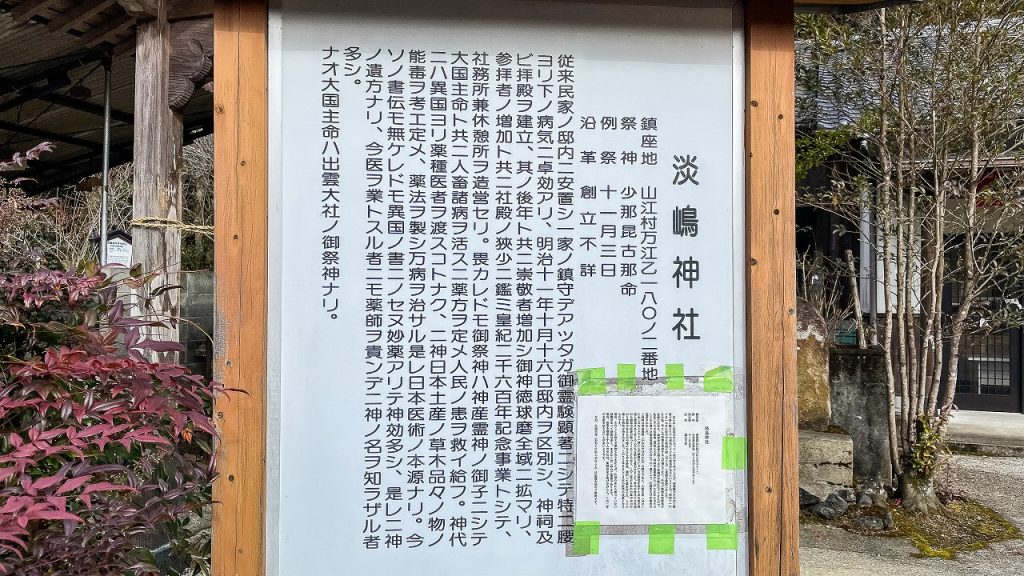 淡嶋神社
鎮座地 山江村万江乙一八〇ノ二番地
祭神 少那毘古那命
例祭 十一月三日
沿革 創立不詳
従来民家ノ邸内ニ安置シ一家ノ鎮守デアッタガ御霊験顕著ニシテ特ニ腰
ヨリ下ノ病気ニ卓効アリ、明治十一年十月十六日邸内ヲ区別シ、神祠及
ビ拝殿ヲ建立、其ノ後年ト共ニ崇敬者増加シ御神徳球磨全域ニ拡マリ、
参拝者ノ増加ト共ニ社殿ノ狭少ニ鑑ミ皇紀二千六百年記念事業トシテ、
社務所兼休憩所ヲ造営セリ。畏カレドモ御祭神ハ神産霊神ノ御子ニシテ
大国主命ト共ニ人畜諸病ヲ活スニ薬方ヲ定メ人民ノ患ヲ救イ給フ。神代
ニハ異国ヨリ薬種医者ヲ渡スコトナク、二神日本土産ノ草木品々ノ物ノ
能毒ヲ考エ定メ、薬法ヲ製シ万病ヲ治サル是レ日本医術ノ本源ナリ。今
ソノ書伝モ無ケレドモ異国ノ書ニノセヌ妙薬アリテ神効多シ、是レ二神
ノ遺方ナリ、今医ヲ業トスル者ニモ薬師ヲ貴ンデ二神ノ名ヲ知ラザル者
多シ。
ナオ大国主命ハ出雲大社ノ御祭神ナリ。